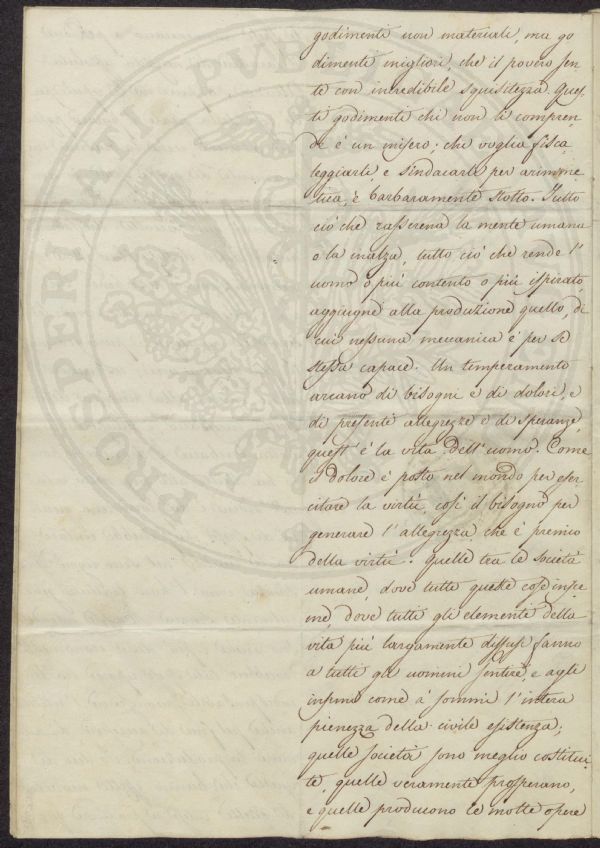 godimenti non materiali, ma go
dimenti migliori, che il povero sen
te con incredibile squisitezza. Ques
ti godimenti chi non li compren
de è un misero; chi voglia fisca
leggiarli, e sindacarli per arimme
tica, è barbaramente stolto. Tutto
ciò che rasserena la mente umana
o la inalza, tutto ciò che rende l'
uomo o più contento o più ispirato,
aggiugne alla produzione quello, di
cui nessuna meccanica è per se
stessa capace. Un temperamento
arcano di bisogni e di dolori, e
di presenti allegrezze e di speranze,
quest' è la vita dell' uomo. Come
il dolore è posto nel mondo per eser
citare la virtù, così il bisogno per
generare l' allegrezza, che è premio
della virtù. Quelle tra le società
umane, dove tutte queste cose insie
me, dove tutti gli elementi della
vita più largamente diffusi fanno
a tutti gli uomini sentire, e agli
infimi come a' sommi l' intera
pienezza della civile esistenza;
quelle società sono meglio costitui
te, quelle veramente prosperano,
e quelle producono le molte opere
PROSPERITATI PVBL